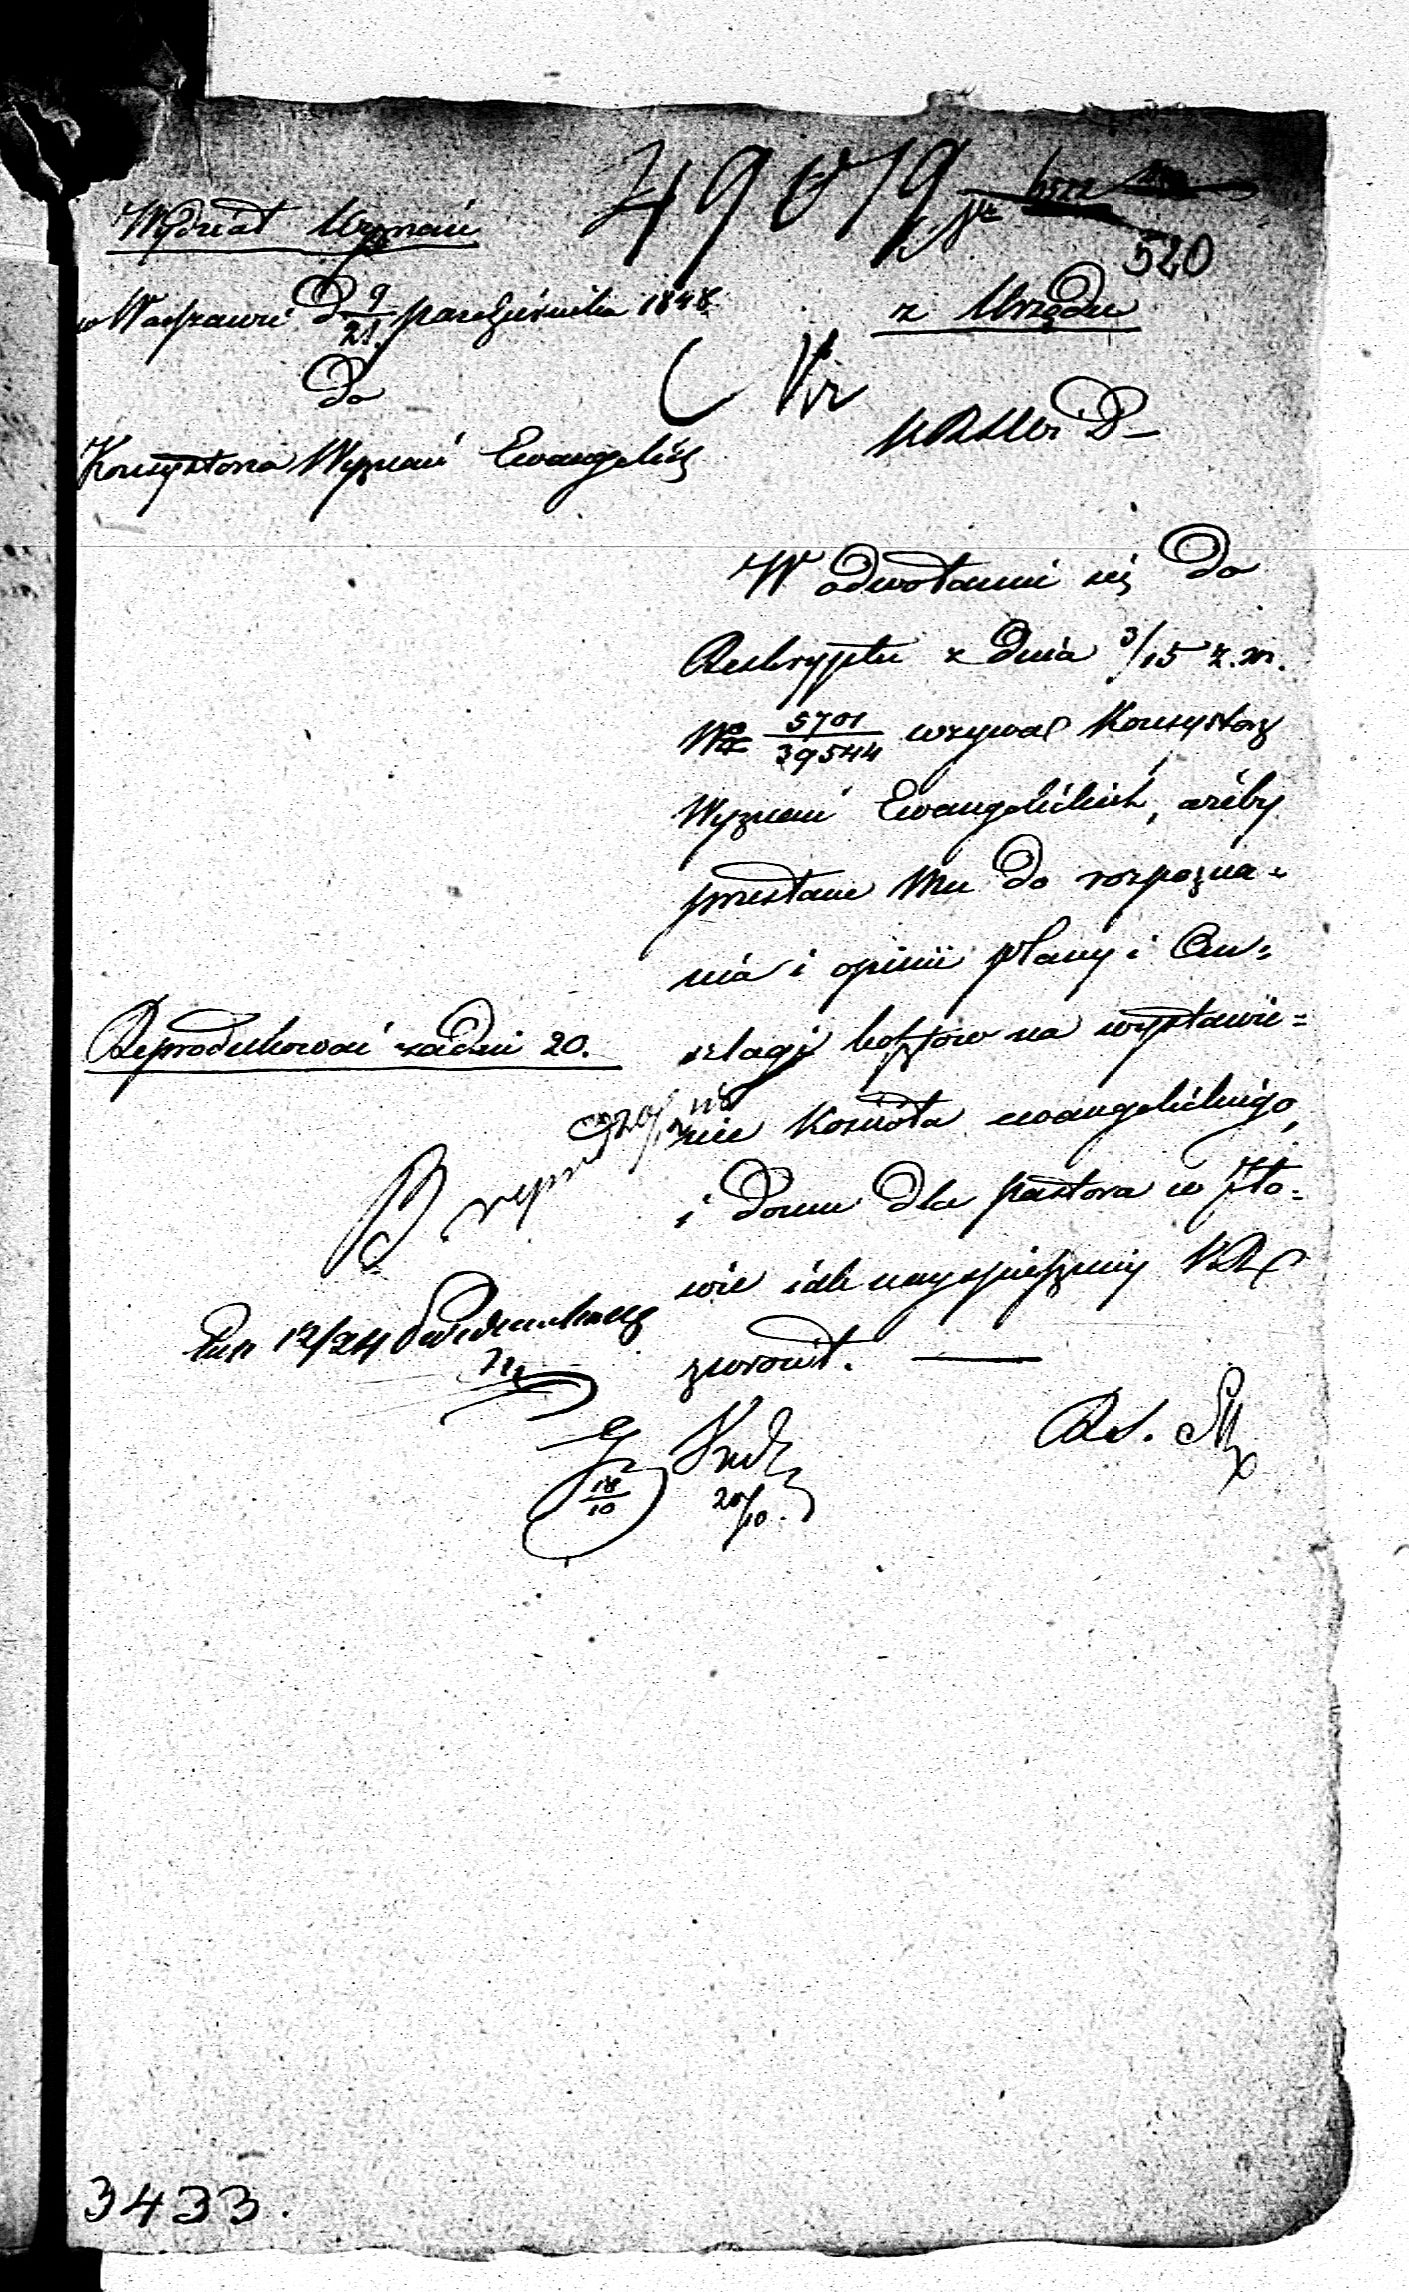 49019
520
Wydział Wyznań
w Warszawie D 9/21 października 1848
z Urzędu
Do
Konsystorza Wyznań Ewangelick
W odwołaniu się do
Reskryptu z dnia 3/15 z.m.
No 5701/39544 wzywa Konsystorz
Wyznań Ewangelickich, ażeby
przesłane Mu do rozpozna=
nia i opinii plany i An=
szlagi kosztów na wystawie=
nie Kościoła ewangelickiego,
i Domu dla pastora w Iło=
wie iak nayspieszniey
zwrócił.
Reprodukować za dni 20.
12/24
18/10
20/10.
3433.